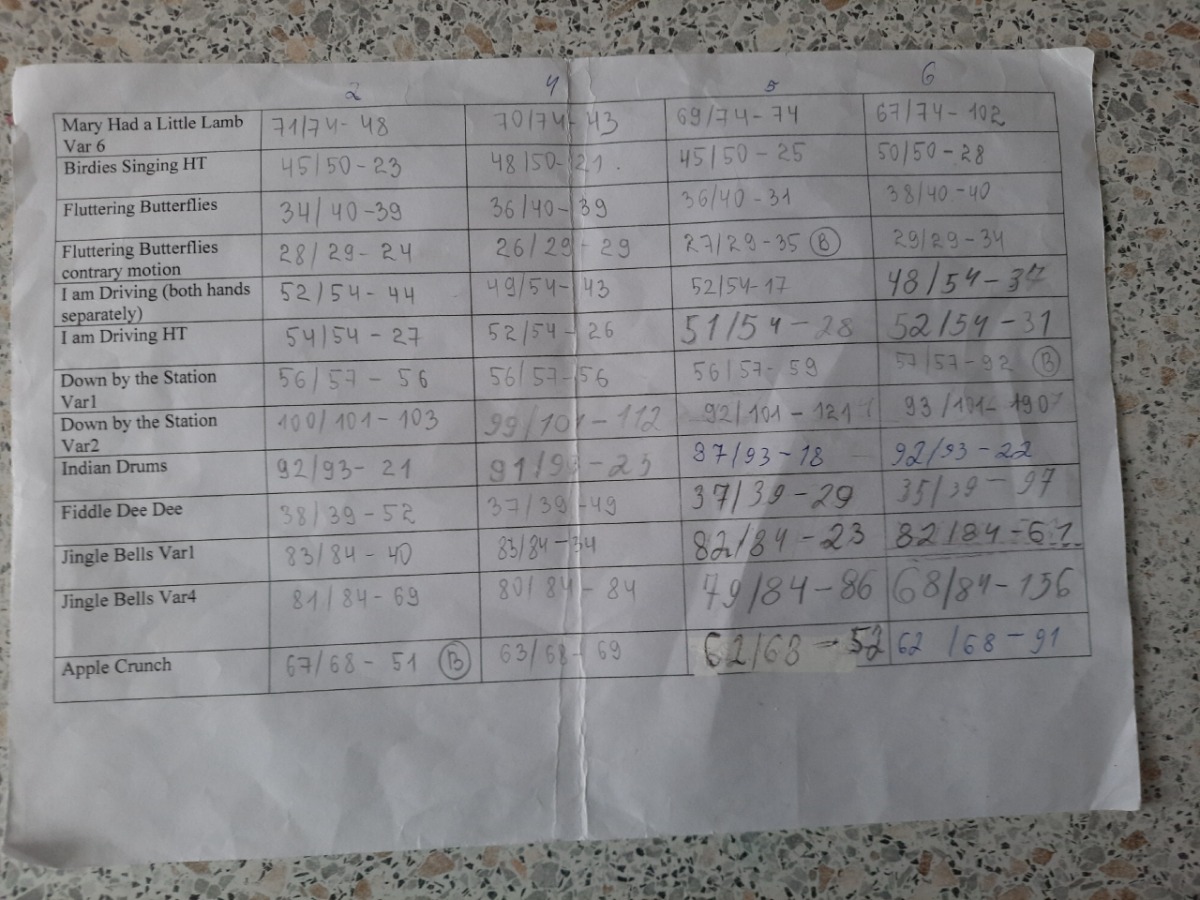 2 4 5 6
Mary Had a Little Lamb 71/74- 48 70/74- 43 69/74 - 74 67/74 - 102
Var 6
Birdies Singing HT 45/50 - 23 48/50- 21. 45/50 - 25 50/50 - 28
Fluttering Butterflies 34/40 -39 36/40- 39 36/40 - 31 38/40 -40
Fluttering Butterflies 28/29 - 24 26/29 - 29 27/29 -35 B 29/29 - 34
contrary motion
I am Driving (both hands 52/54 - 44 49/54- 43 52/54-17 48/54 -
separately)
I am Driving HT 54/54 - 27 52/54 - 26 51/54 - 28 52/54 - 31
Down by the Station 56/57 - 56 56/57- 56 56/57- 59 57/57 - 92 B
Var1
Down by the Station 100/101 - 103 99/101 - 112 92/101 - 121 93/101- 190
Var2
Indian Drums 92/93- 21 91/93 - 23 /93 - 18 92/93 - 22
Fiddle Dee Dee 38/39 - 52 37/39 -49 37/39 - 29 35/39 - 97
Jingle Bells Var1 83/84 - 40 83/84 - 34 82/84 - 23 82/84 - 61
Jingle Bells Var4 81/84 - 69 80/84 - 84 79/84 - 86 68/84 - 136
Apple Crunch 67/68 - 51 B 63/68 - 69 62/68 - 52 62 /68 - 91